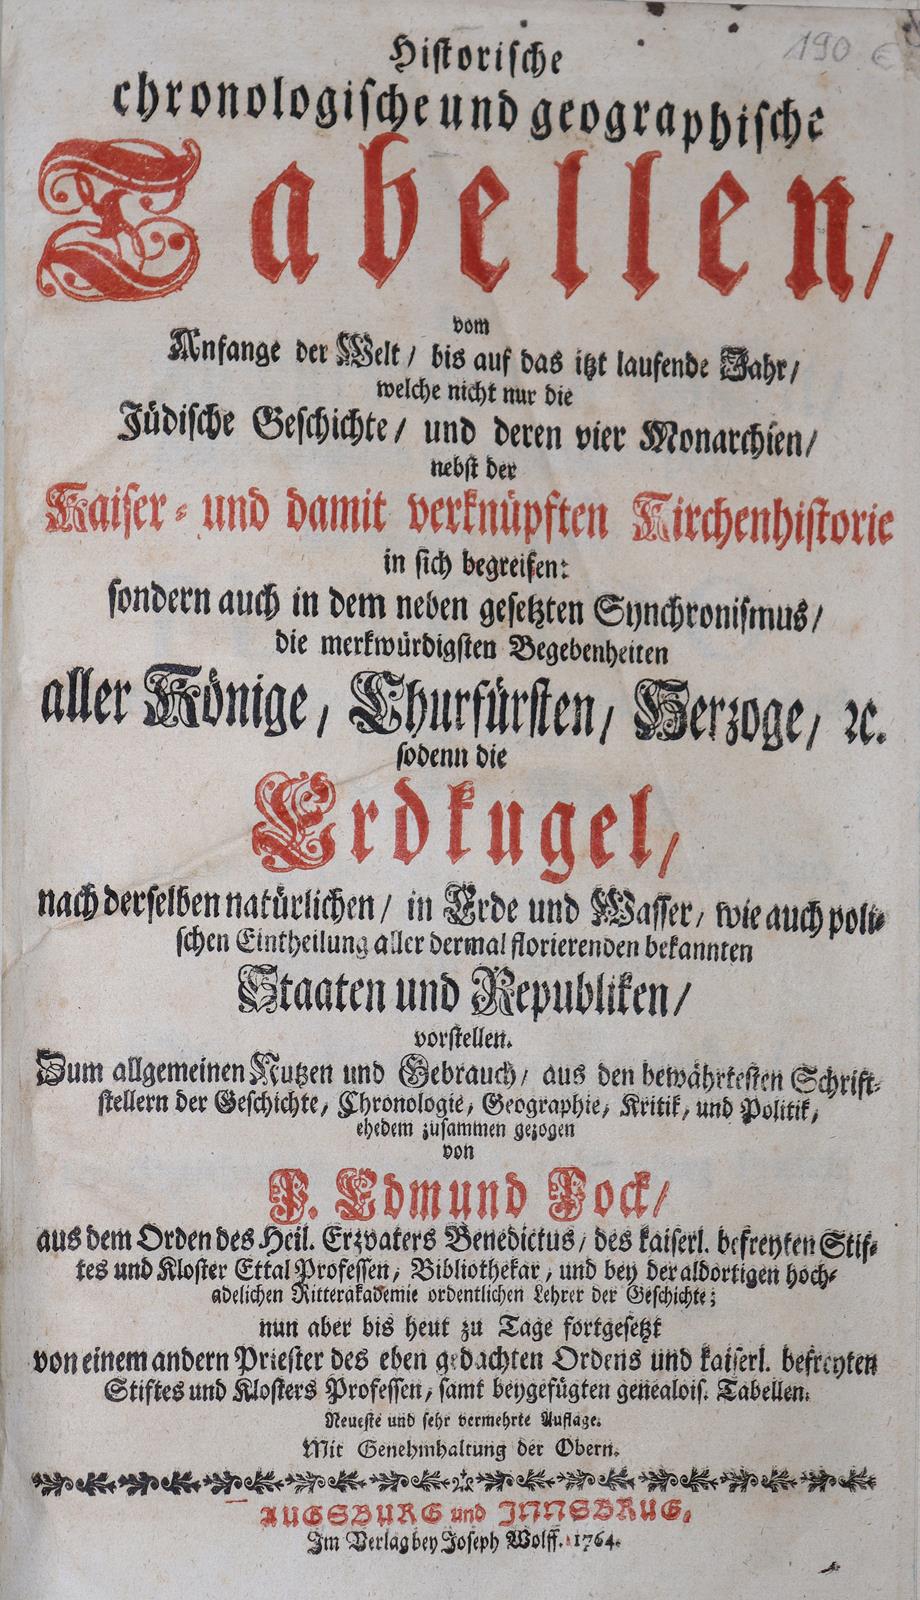 190 €
Historische
chronologische und geographische
Tabellen/
vom
Anfange der Welt/ bis auf das itzt laufende Jahr/
welche nicht nur die
Jüdische Geschichte/ und deren vier Monarchien/
nebst der
Kaiser- und damit verknüpften Kirchenhistorie
in sich begreifen:
sondern auch in dem neben gesetzten Synchronismus/
die merkwürdigsten Begebenheiten
aller Könige/ Churfürsten/ Herzoge/ ꝛc.
sodenn die
Erdkugel/
nach derselben natürlichen/ in Erde und Wasser/ wie auch politi-
schen Eintheilung aller dermal florierenden bekannten
Staaten und Republiken/
vorstellen.
Zum allgemeinen Nutzen und Gebrauch/ aus den bewährtesten Schrift-
stellern der Geschichte, Chronologie, Geographie, Kritik, und Politik,
ehedem zusammen gezogen
von
P. Edmund Pock/
aus dem Orden des Heil. Erzvaters Benedictus, des kaiserl. befreyten Stif-
tes und Kloster Ettal Professen, Bibliothekar, und bey der aldortigen hoch-
adelichen Ritterakademie ordentlichen Lehrer der Geschichte;
nun aber bis heut zu Tage fortgesetzt
von einem andern Priester des eben gedachten Ordens und kaiserl. befreyten
Stiftes und Klosters Professen, samt beygefügten genealois. Tabellen.
Neueste und sehr vermehrte Auflage.
Mit Genehmhaltung der Obern.
AUGSBURG und INNSBRUG,
Im Verlag bey Joseph Wolff. 1764.